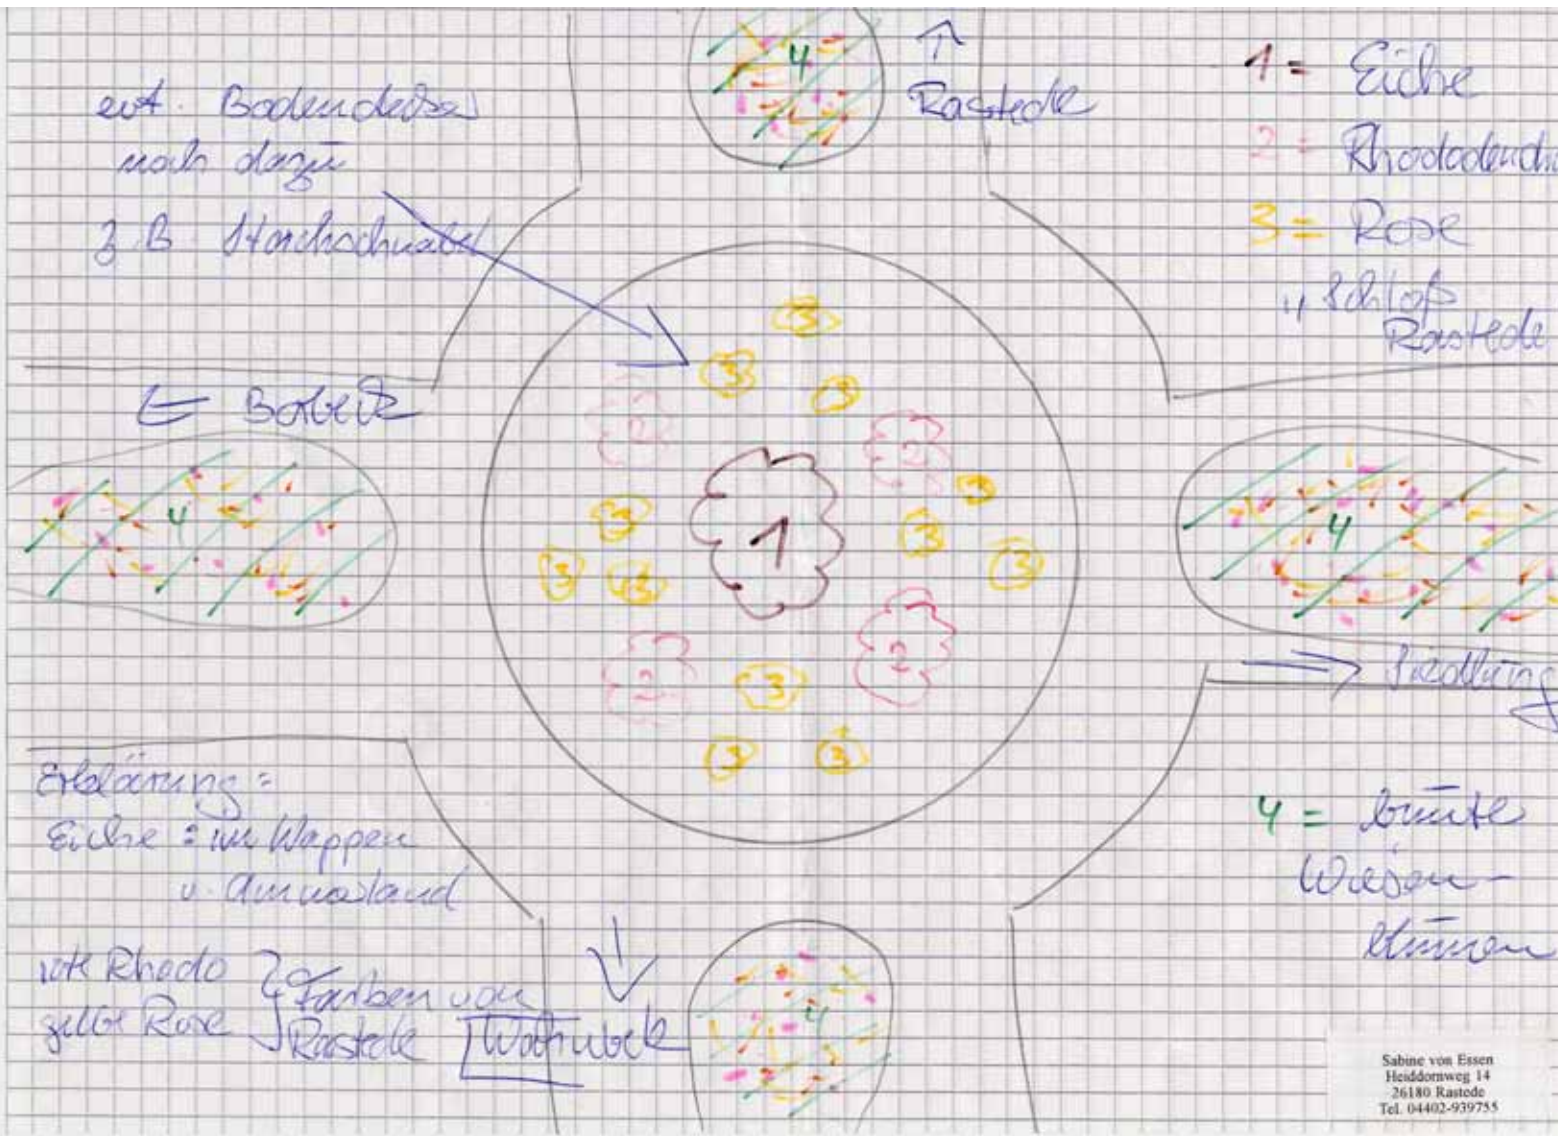 evt. Bodendecker
noch dazu
z.B. Storchschnabel
↑
Rastede
1 = Eiche
2 = Rhododendr
3 = Rose
„Schloß
Rastede
⇐ Borbeck
4
3
3
3
2
2
3
3
1
3
3
3
3
4
4
2
2
3
3
3
⇒ Siedlung
Erklärung =
Eiche = im Wappen
v. Ammerland
rote Rhodo
gelbe Rose
} Farben von
Rastede
↓
Wahnbek
4
4 = bunte
Wiesen-
blumen
Sabine von Essen
Heiddornweg 14
26180 Rastede
Tel. 04402-939755